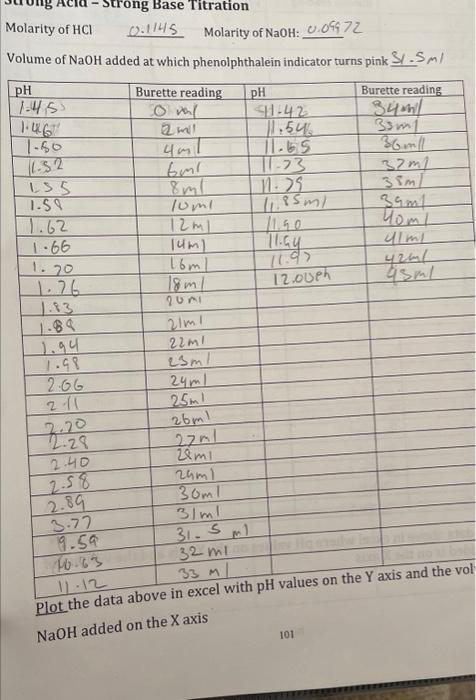 Strong Acid – Strong Base Titration
Molarity of HCl 0.1145 Molarity of NaOH: 0.09972
Volume of NaOH added at which phenolphthalein indicator turns pink 31.5ml
pH Burette reading pH Burette reading
1.45 0 11.42 34ml
1.46 2ml 11.54 35ml
1.50 4ml 11.65 36ml
1.52 6ml 11.73 37ml
1.55 8ml 11.79 38ml
1.59 10ml 11.85ml 39ml
1.62 12ml 11.90 40ml
1.66 14ml 11.94 41ml
1.70 16ml 11.97 42ml
1.76 18ml 12.00ph 43ml
1.83 20ml
1.89 21ml
1.94 22ml
1.98 23ml
2.06 24ml
2.11 25ml
2.20 26ml
2.29 27ml
2.40 28ml
2.58 29ml
2.89 30ml
3.77 31ml
9.59 31.5 ml
10.63 32 ml
11.12 33 ml
Plot the data above in excel with pH values on the Y axis and the vol
NaOH added on the X axis
101